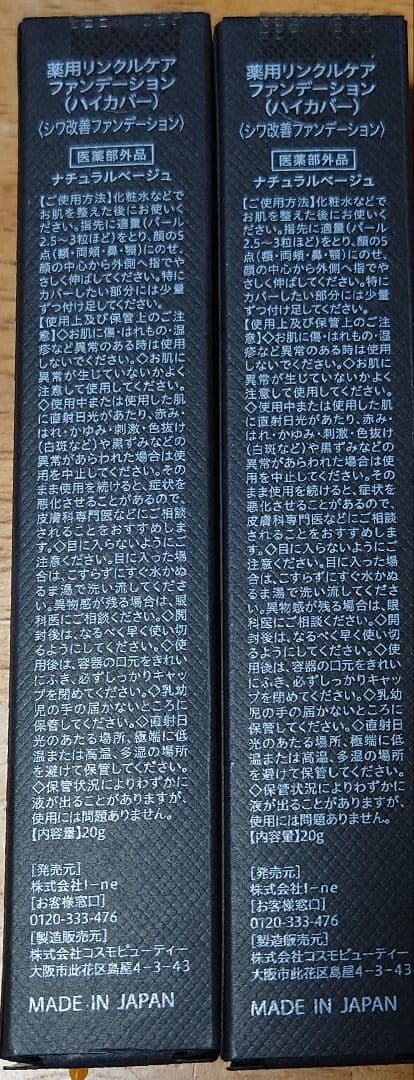 薬用リンクルケア
ファンデーション
(ハイカバー)
〈シワ改善ファンデーション〉
医薬部外品
ナチュラルベージュ
【ご使用方法】化粧水などで
お肌を整えた後にお使いく
ださい。指先に適量(パール
2.5〜3粒ほど)をとり、顔の5
点(額・両頬・鼻・顎)にのせ、
顔の中心から外側へ指でや
さしく伸ばしてください。特に
カバーしたい部分には少量
ずつ付け足してください。
【使用上及び保管上のご注
意】◇お肌に傷・はれもの・湿
疹など異常のある時は使用
しないでください。◇お肌に
異常が生じていないかよく
注意して使用してください。
◇使用中または使用した肌
に直射日光があたり、赤み・
はれ・かゆみ・刺激・色抜け
(白斑など)や黒ずみなどの
異常があらわれた場合は使
用を中止してください。その
まま使用を続けると、症状を
悪化させることがあるので、
皮膚科専門医などにご相談
されることをおすすめしま
す。◇目に入らないようにご
注意ください。目に入った場
合は、こすらずにすぐ水かぬ
るま湯で洗い流してくださ
い。異物感が残る場合は、眼
科医にご相談ください。◇開
封後は、なるべく早く使い切
るようにしてください。◇使
用後は、容器の口元をきれい
にふき、必ずしっかりキャッ
プを閉めてください。◇乳幼
児の手の届かないところに
保管してください。◇直射日
光のあたる場所、極端に低
温または高温、多湿の場所
を避けて保管してください。
◇保管状況によりわずかに
液が出ることがありますが、
使用には問題ありません。
【内容量】20g
[発売元]
株式会社I-ne
[お客様窓口]
0120-333-476
[製造販売元]
株式会社コスモビューティー
大阪市此花区島屋4-3-43
MADE IN JAPAN
薬用リンクルケア
ファンデーション
(ハイカバー)
〈シワ改善ファンデーション〉
医薬部外品
ナチュラルベージュ
【ご使用方法】化粧水などで
お肌を整えた後にお使いく
ださい。指先に適量(パール
2.5〜3粒ほど)をとり、顔の5
点(額・両頬・鼻・顎)にのせ、
顔の中心から外側へ指でや
さしく伸ばしてください。特に
カバーしたい部分には少量
ずつ付け足してください。
【使用上及び保管上のご注
意】◇お肌に傷・はれもの・湿
疹など異常のある時は使用
しないでください。◇お肌に
異常が生じていないかよく
注意して使用してください。
◇使用中または使用した肌
に直射日光があたり、赤み・
はれ・かゆみ・刺激・色抜け
(白斑など)や黒ずみなどの
異常があらわれた場合は使
用を中止してください。その
まま使用を続けると、症状を
悪化させることがあるので、
皮膚科専門医などにご相談
されることをおすすめしま
す。◇目に入らないようにご
注意ください。目に入った場
合は、こすらずにすぐ水かぬ
るま湯で洗い流してくださ
い。異物感が残る場合は、眼
科医にご相談ください。◇開
封後は、なるべく早く使い切
るようにしてください。◇使
用後は、容器の口元をきれい
にふき、必ずしっかりキャッ
プを閉めてください。◇乳幼
児の手の届かないところに
保管してください。◇直射日
光のあたる場所、極端に低
温または高温、多湿の場所
を避けて保管してください。
◇保管状況によりわずかに
液が出ることがありますが、
使用には問題ありません。
【内容量】20g
[発売元]
株式会社I-ne
[お客様窓口]
0120-333-476
[製造販売元]
株式会社コスモビューティー
大阪市此花区島屋4-3-43
MADE IN JAPAN